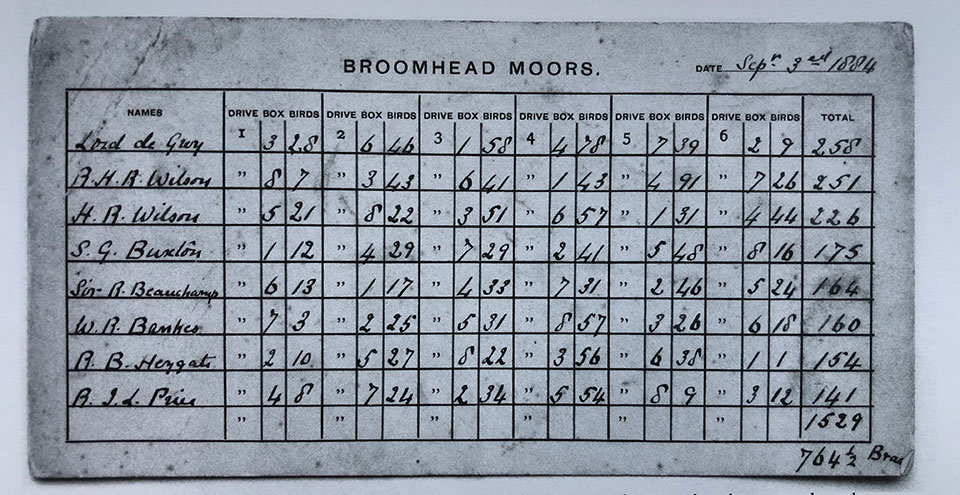 BROOMHEAD MOORS.
DATE Sepr. 3rd 1884
NAMES DRIVE BOX BIRDS DRIVE BOX BIRDS DRIVE BOX BIRDS DRIVE BOX BIRDS DRIVE BOX BIRDS DRIVE BOX BIRDS TOTAL
Lord de Grey 1 3 28 2 6 46 3 1 58 4 4 78 5 7 39 6 2 9 258
R.H.R. Wilson " 8 7 " 3 43 " 6 41 " 1 43 " 4 91 " 7 26 251
H. R. Wilson " 5 21 " 8 22 " 3 51 " 6 57 " 1 31 " 4 44 226
S. G. Buxton " 1 12 " 4 29 " 7 29 " 2 41 " 5 48 " 8 16 175
Sir R. Beauchamp " 6 13 " 1 17 " 4 33 " 7 31 " 2 46 " 5 24 164
W. R. Bankes " 7 3 " 2 25 " 5 31 " 8 57 " 3 26 " 6 18 160
R. B. Heygate " 2 10 " 5 27 " 8 22 " 3 56 " 6 38 " 1 1 154
R. J. L. Price " 4 8 " 7 24 " 2 34 " 5 54 " 8 9 " 3 12 141
" " " " " " 1529
764½ Brac